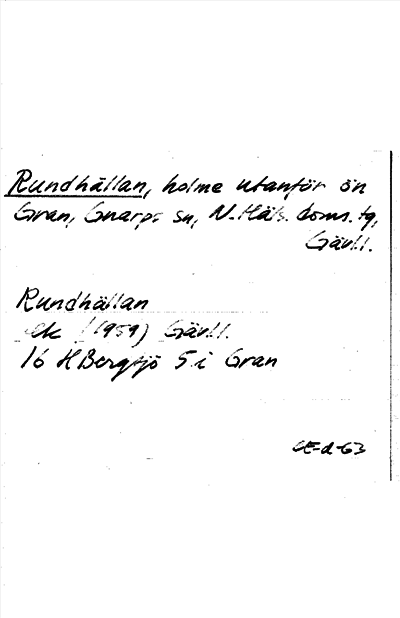 Rundhällan, holme utanför ön
Gran, Gnarps sn, N. Häls. doms. tg,
Gävll.
Rundhällan
ek (1959) Gävll.
16 H Bergsjö S i Gran